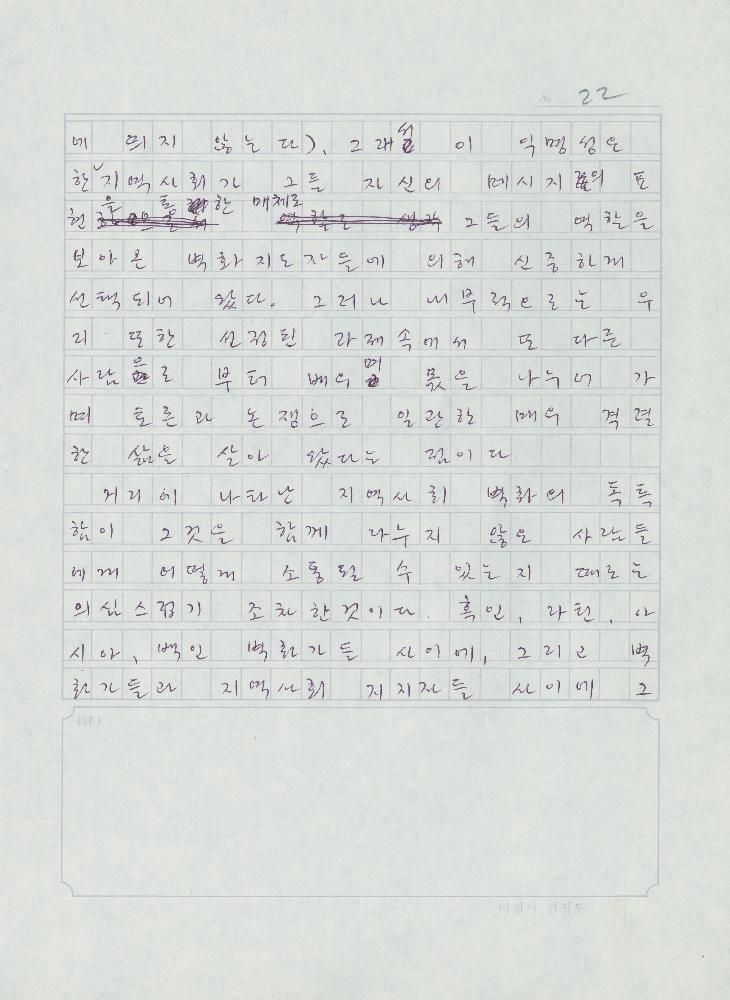 № 22
에 띄지 않는다), 그래서 이 익명성은
한 지역사회가 그들 자신의 메시지의 표
현을 통한 매체로 그들의 역할을
보아온 벽화지도자들에 의해 신중하게
선택되어 왔다. 그러나 내부적으로는 우
리 또한 선정된 과제속에서 또 다른
사람으로 부터 배우며 몫을 나누어 가
며 토론과 논쟁으로 일관한 매우 격렬
한 삶을 살아 왔다는 점이다
거리에 나타난 지역사회 벽화의 독특
함이 그것을 함께 나누지 않은 사람들
에게 어떻게 소통될 수 있는지 때로는
의심스럽기 조차 한것이다. 흑인, 라틴, 아
시아, 백인 벽화가들 사이에, 그리고 벽
화가들과 지역사회 지지자들 사이에 그
(註)
미진사 편집부